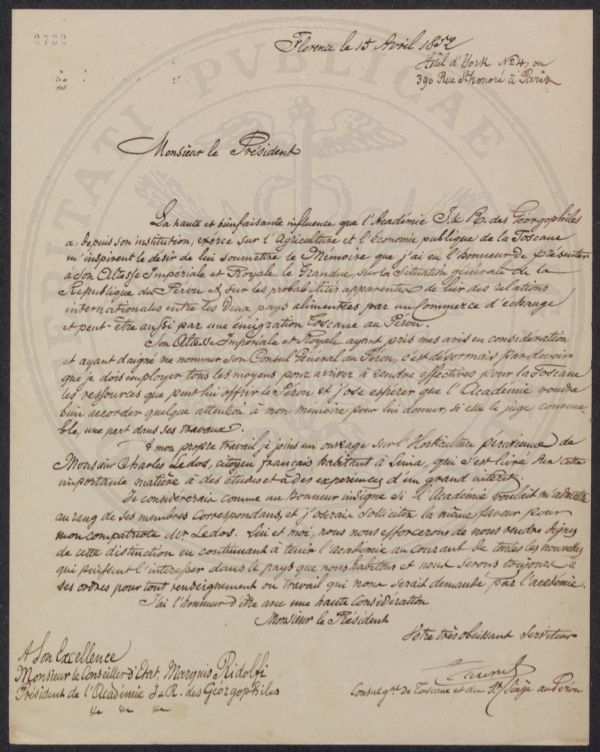 2732
TATI PUBLICAE
Florence le 15 Avril 1852
Hôtel d'York No 4, ou
390 Rue St honoré à Paris
Monsieur le Président
La haute et bienfaisante influence que l'Académie I. & R. des Géorgophiles
a, depuis son institution, exercé sur l'Agriculture et l'économie publique de la Toscane
m'inspirent le désir de lui soumettre le Mémoire que j'ai eu l'honneur de présenter
à Son Altesse Impériale et Royale, le Grand Duc, sur la Situation générale de la
République du Pérou et sur les probabilités apparentes de lier des relations
internationales entre les deux pays alimentées par un Commerce d'échange
et peut-être aussi par une émigration Toscane au Pérou.
Son Altesse Impériale et Royale ayant pris mes avis en considération
et ayant daigné me nommer Son Consul Général au Pérou, c'est désormais par devoir
que je dois employer tous les moyens pour arriver à rendre effectives pour la Toscane
les ressources que peut lui offrir le Pérou et j'ose espérer que l'Académie voudra
bien accorder quelque attention à mon mémoire pour lui donner, si elle le juge convena
ble, une part dans ses travaux.
A mon propre travail je joins un ouvrage sur l'Horticulture péruvienne de
Monsieur Charles Ledos, citoyen français habitant à Lima, qui s'est livré sur cette
importante matière à des études et à des expériences d'un grand intérêt.
Je considérerais comme un honneur insigne si l'Académie voulait m'admettre
au rang de ses membres correspondans, et j'oserais solliciter la même faveur pour
mon compatriote Mr Ledos. Lui et moi, nous nous efforcerons de nous rendre dignes
de cette distinction en continuant à tenir l'académie au courant de toutes les nouvelles
qui puissent l'intéresser dans le pays que nous habitons et nous serons toujours à
ses ordres pour tout renseignement ou travail qui nous serait demandé par l'académie.
J'ai l'honneur d'être avec une haute Considération
Monsieur le Président
Votre très obéissant Serviteur
A Son Excellence
Monsieur le Conseiller d'Etat, Marquis Ridolfi
Président de l'Académie I. & R. des Géorgophiles
Consul gal de Toscane et du St Siège au Pérou